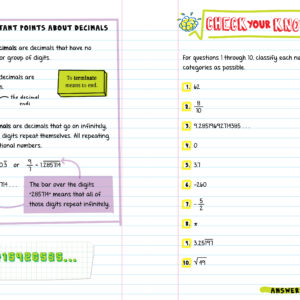 TANT POINTS ABOUT DECIMALS
cimals are decimals that have no
or group of digits.
To terminate
means to end.
the decimal
ends
cimals are decimals that go on infinitely,
digits repeat themselves. All repeating
tional numbers.
The bar over the digits
"285714" means that all of
those digits repeat infinitely.
CHECK YOUR KNO
For questions 1 through 10, classify each n
categories as possible.
1. 62
2. 8/10
4. 0
5. 3.7
6. -260
7. -5/2
8. π
10. √49
ANSWER